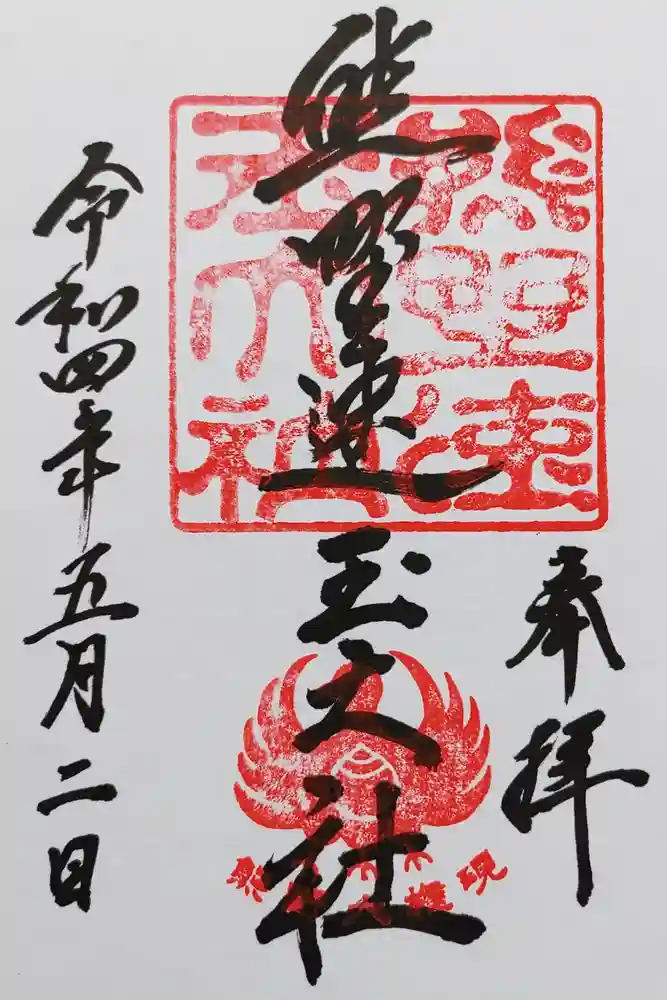 奉拝
熊野速玉大社
熊野速玉大神
令和四年五月二日